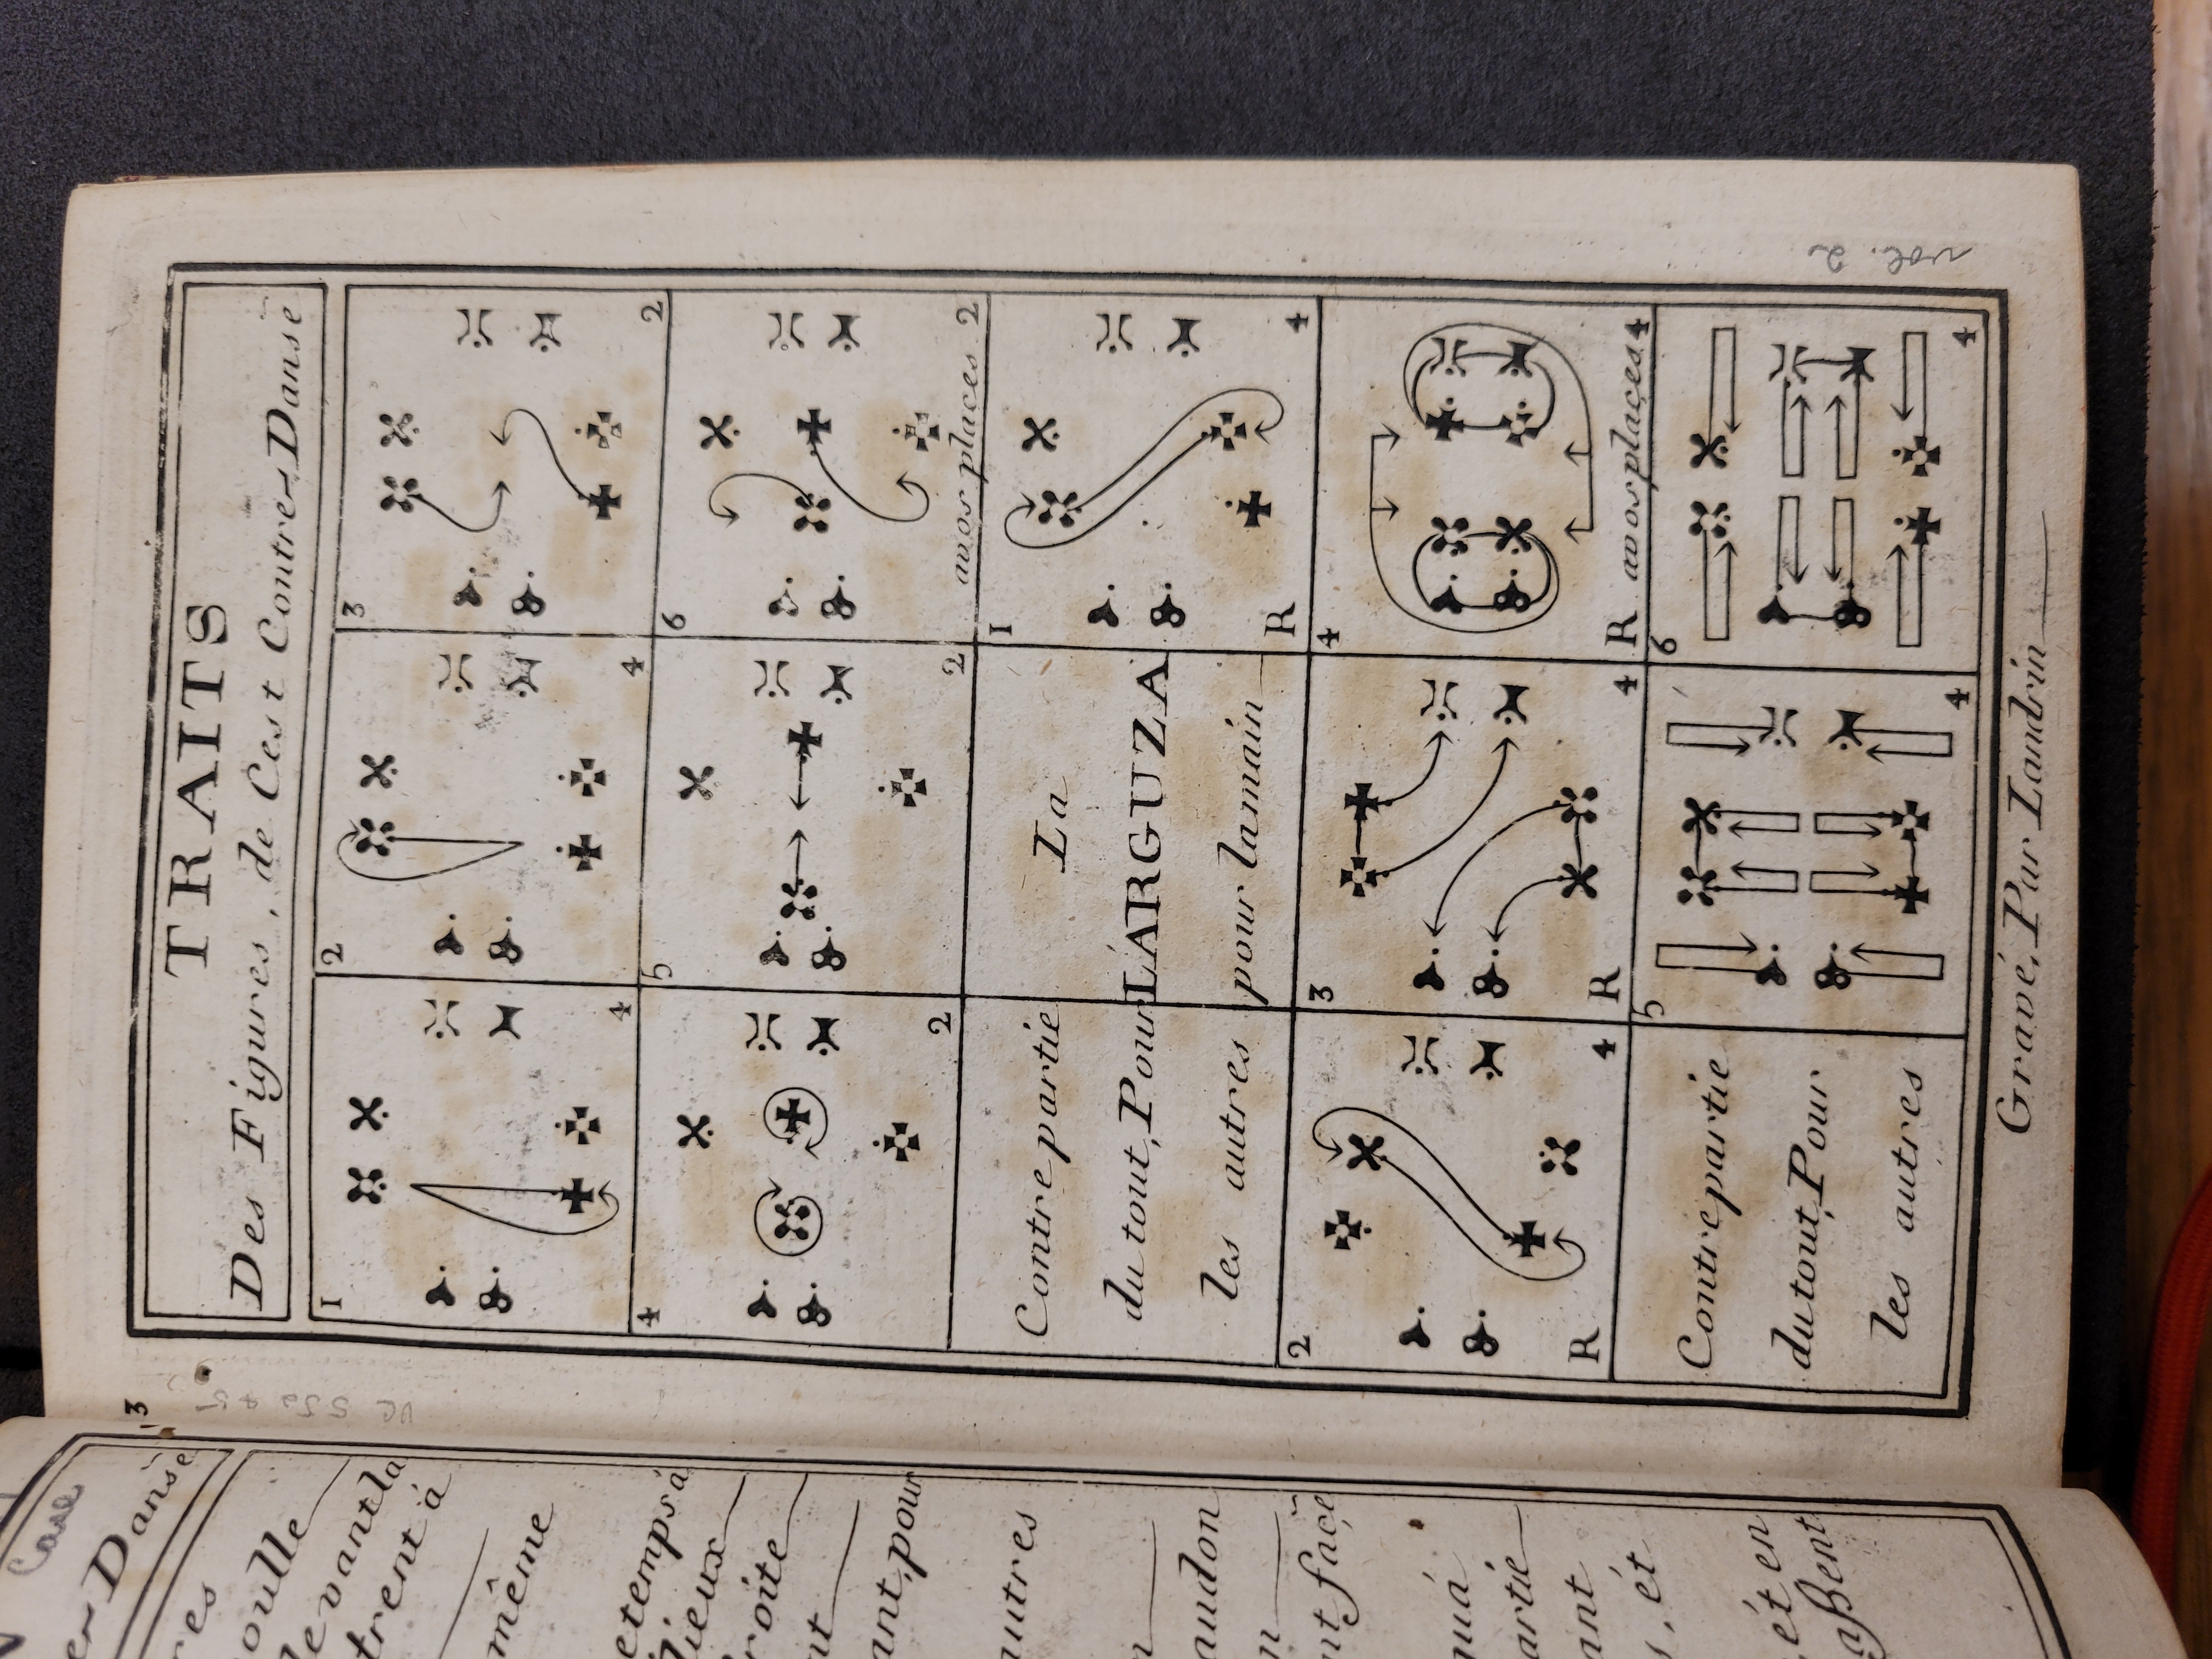 TRAITS
Des Figures, de Cest Contres Danse
1
4
2
4
3
2
4
2
5
2
6
avos places 2
Contre partie
du tout, Pour
les autres
La
LARGUZA
pour lamain
1
R
4
2
R
4
3
R
4
4
R avos places 4
Contre partie
du tout, Pour
les autres
5
4
6
4
Gravé, Par Landrin
vol. 2
3
Danse
oulle
devant la
trent à
même
et temps à
lieux
roite
nt
ant, pour
autres
audon
n
nt façe
qu'á
artie
ant
s, ét
ét en
aßent